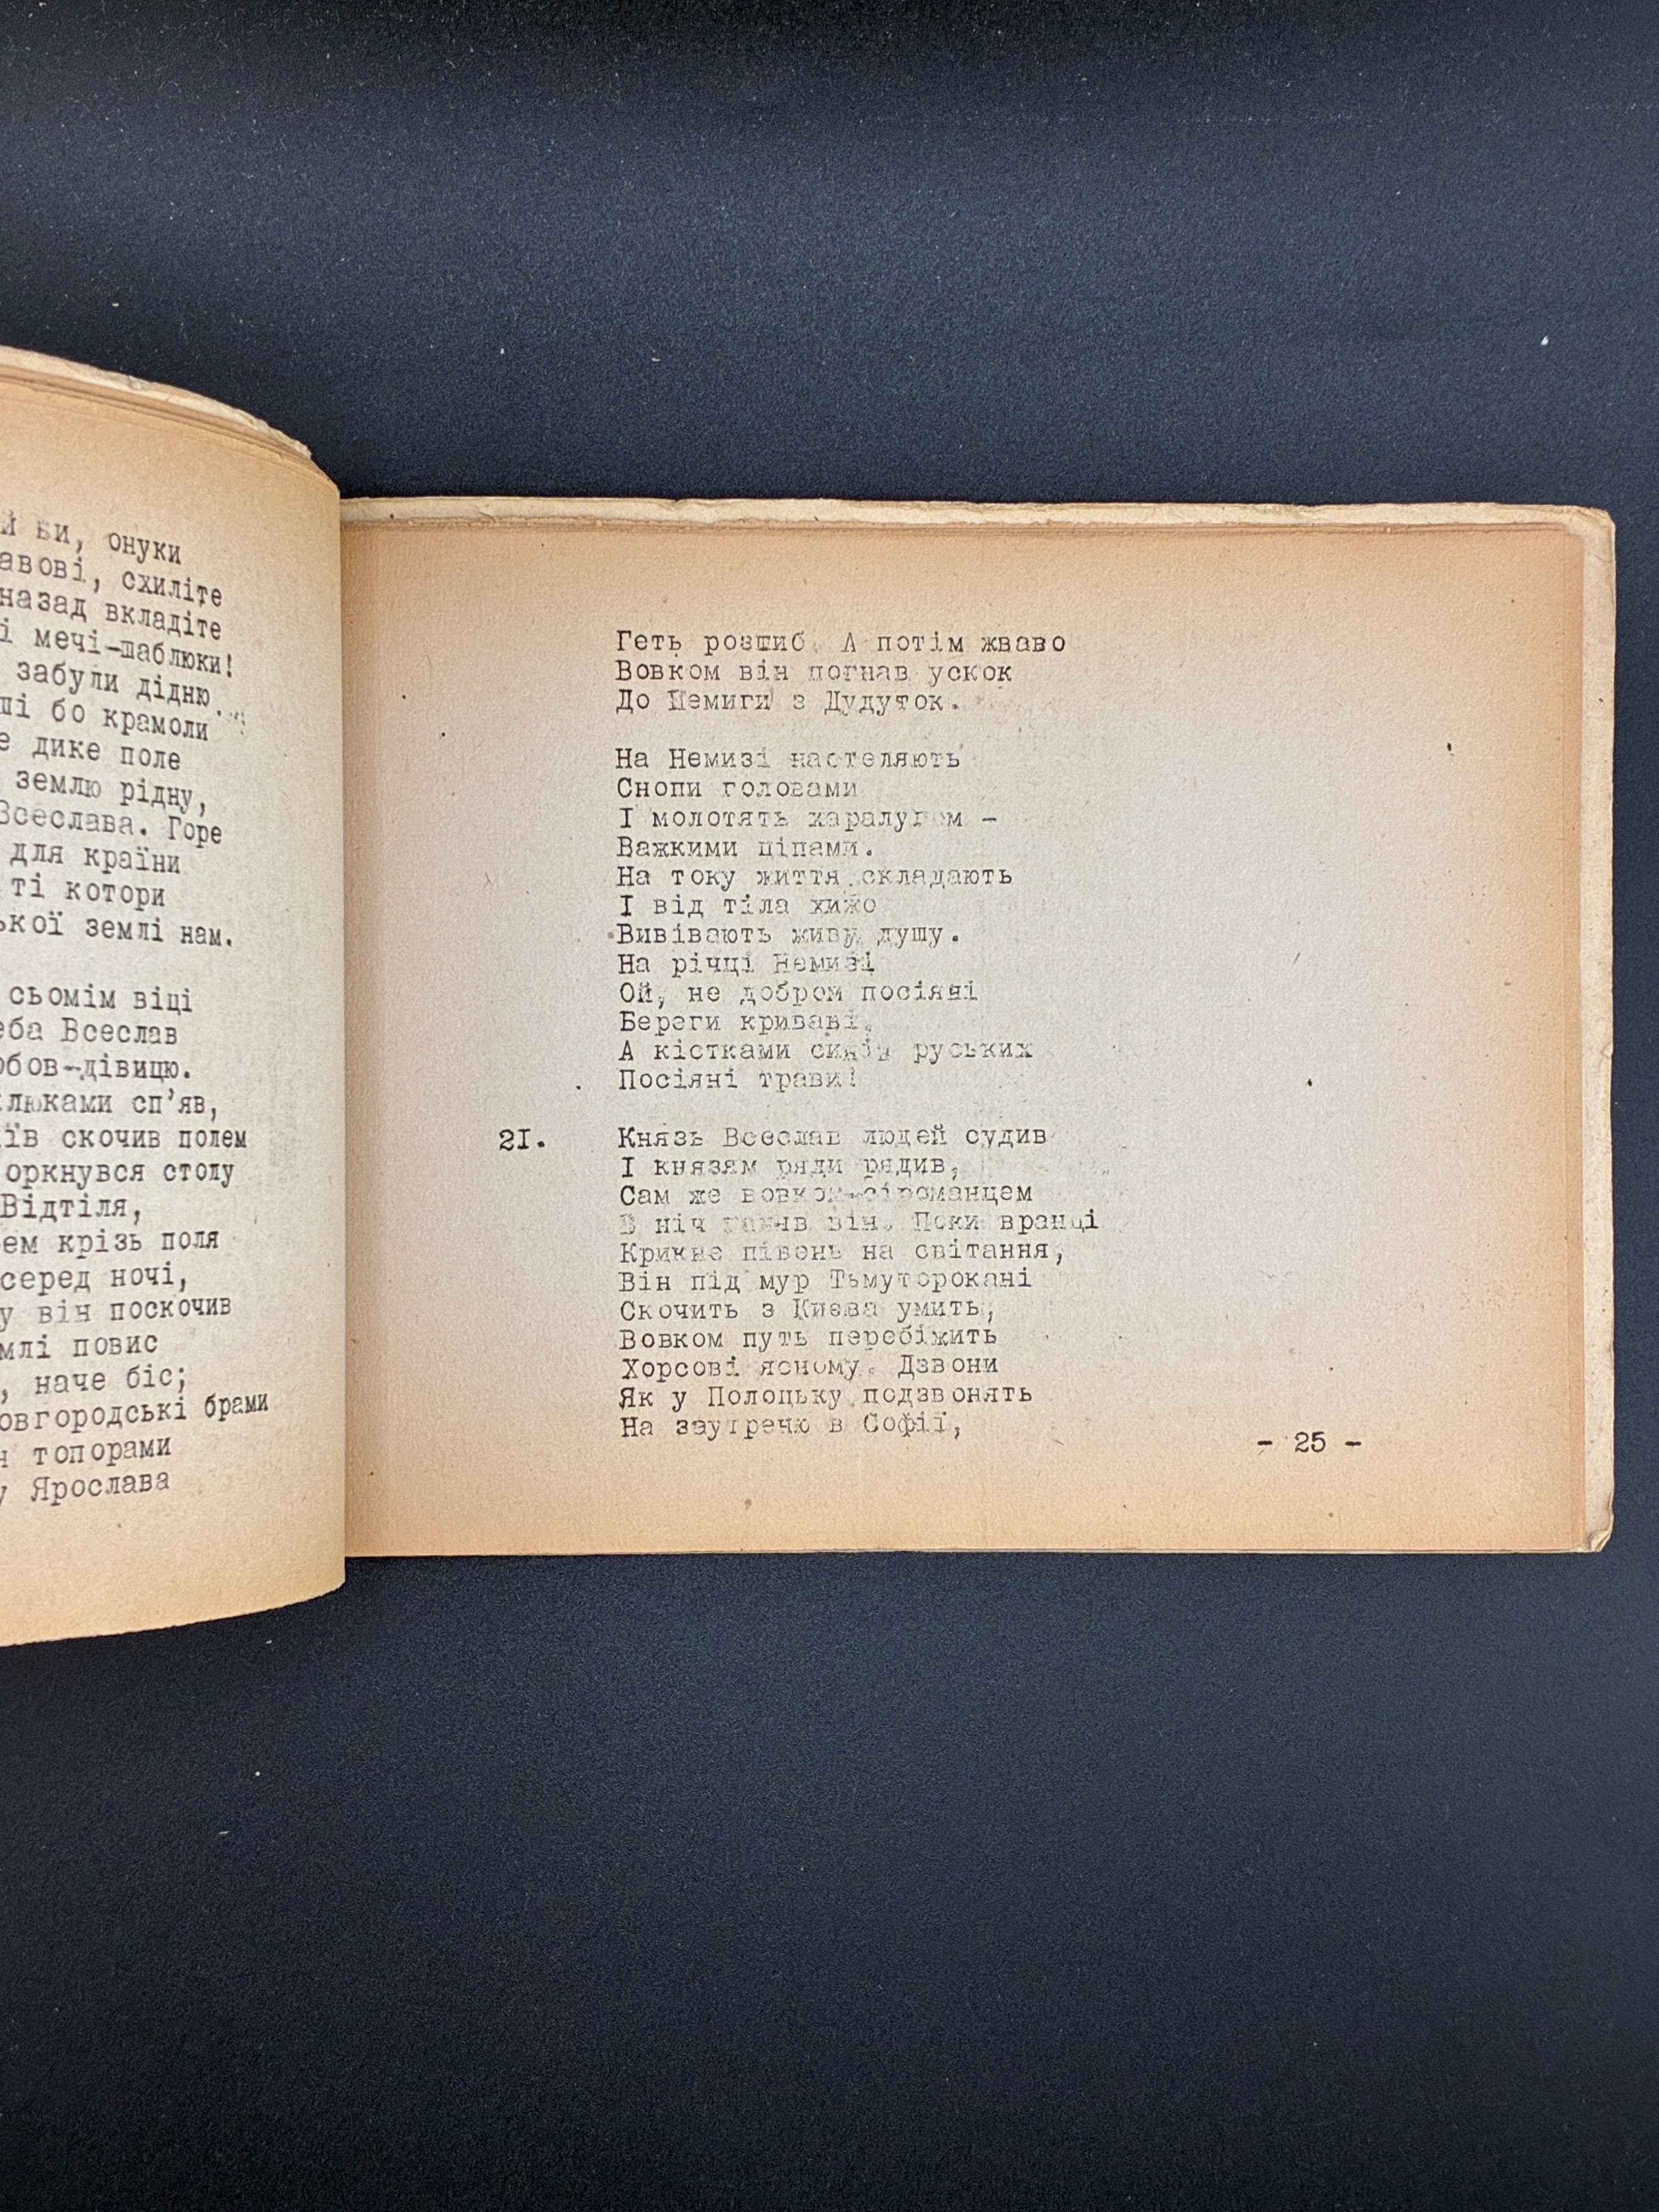 ви, онуки
схиліте
назад вкладіте
і мечі-шаблюки!
забули дідню
бо крамоли
дике поле
землю рідну,
Всеслава. Горе
для країни
ті котори
землі нам.
сьомім віці
Всеслав
дівицю.
сп'яв,
скочив полем
столу
Відтіля,
крізь поля
серед ночі,
він поскочив
повис
, наче біс;
брами
топорами
Ярослава
Геть розшиб. А потім жваво
Вовком він погнав ускок
До Немиги з Дудуток.
На Немизі настеляють
Снопи головами
І молотять харалугом -
Важкими ціпами.
На току життя складають
І від тіла хижо
Вивівають живу душу.
На річці Немизі
Ой, не добром посіяні
Береги криваві,
А кістками синів руських
Посіяні трави!
21. Князь Всеслав людей судив
І князям ряди рядив,
Сам же вовком-сіроманцем
В ніч ганяв він. Поки вранці
Крикне півень на світання,
Він під мур Тьмуторокані
Скочить з Києва умить,
Вовком путь перебіжить
Хорсові ясному. Дзвони
Як у Полоцьку подзвонять
На заутреню в Софії,
- 25 -